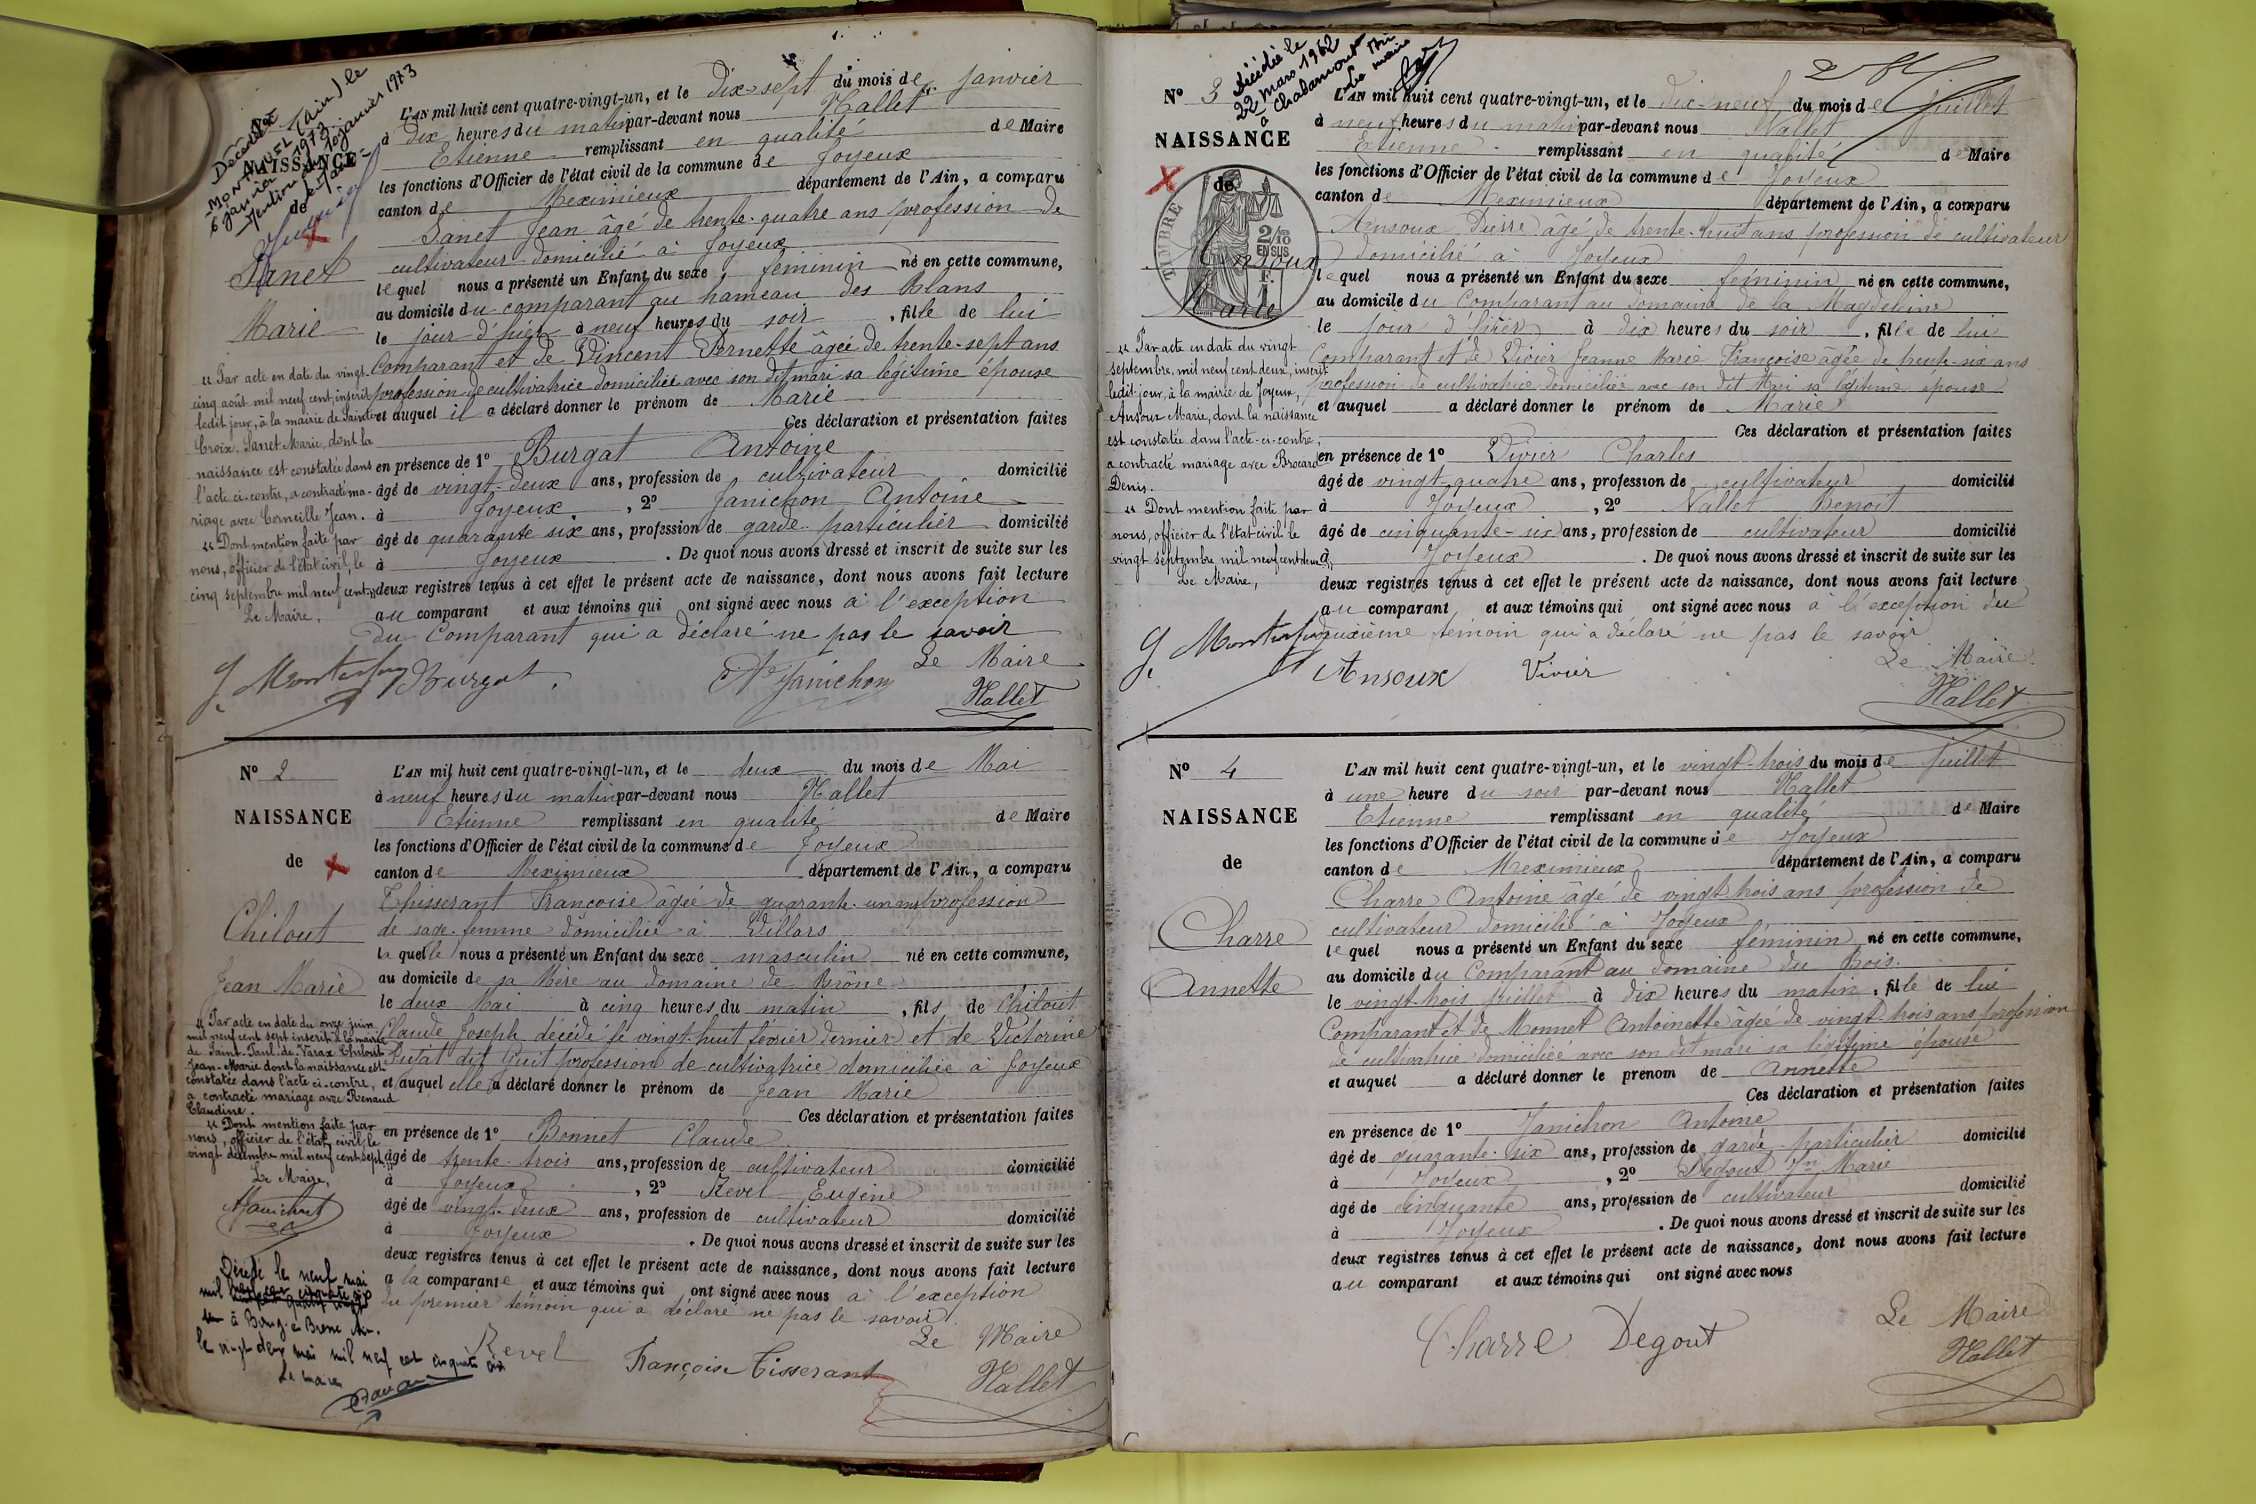 NAISSANCE
de
Janet
Marie
L'AN mil huit cent quatre-vingt-un, et le dix-sept du mois de janvier
à dix heures du matin par-devant nous Nallet
Etienne remplissant en qualité de Maire
les fonctions d'Officier de l'état civil de la commune de Joyeux
canton de Meximieux département de l'Ain, a comparu
Janet Jean âgé de trente-quatre ans profession de
cultivateur domicilié à Joyeux
lequel nous a présenté un Enfant du sexe féminin né en cette commune,
au domicile du comparant au hameau des Blans
le jour d'hier à neuf heures du soir, fille de lui
Comparant et de Vincent Pernette âgée de trente-sept ans
profession de cultivatrice domiciliée avec son dit mari sa légitime épouse
et auquel il a déclaré donner le prénom de Marie
Ces déclaration et présentation faites
en présence de 1º Burgat Antoine
âgé de vingt-deux ans, profession de cultivateur domicilié
à Joyeux, 2º Janichon Antoine
âgé de quarante six ans, profession de garde-particulier domicilié
à Joyeux. De quoi nous avons dressé et inscrit de suite sur les
deux registres tenus à cet effet le présent acte de naissance, dont nous avons fait lecture
au comparant et aux témoins qui ont signé avec nous à l'exception
du Comparant qui a déclaré ne pas le savoir
Le Maire
Burgat Janichon Nallet
Décédée
MONTLUEL (Ain) le
6 janvier 1973
" Par acte en date du vingt-
cinq août mil neuf cent, inscrit
ledit jour, à la mairie de Sainte
Croix, Janet Marie, dont la
naissance est constatée dans
l'acte ci-contre, a contracté ma-
riage avec Corneille Jean.
" Dont mention faite par
nous, officier de l'état civil, le
cinq septembre mil neuf cent."
Le Maire,
Nº 2
NAISSANCE
de
Chilout
Jean Marie
L'AN mil huit cent quatre-vingt-un, et le deux du mois de Mai
à neuf heures du matin par-devant nous Nallet
Etienne remplissant en qualité de Maire
les fonctions d'Officier de l'état civil de la commune de Joyeux
canton de Meximieux département de l'Ain, a comparu
Thisserant Françoise âgée de quarante-un ans profession
de sage-femme domiciliée à Villars
laquelle nous a présenté un Enfant du sexe masculin né en cette commune,
au domicile de sa Mère au domaine de Brône
le deux Mai à cinq heures du matin, fils de Chilout
Claude Joseph décédé le vingt-huit février dernier et de Victorine
profession de cultivatrice domiciliée à Joyeux
et auquel elle a déclaré donner le prénom de Jean Marie
Ces déclaration et présentation faites
en présence de 1º Bonnet Claude
âgé de trente-trois ans, profession de cultivateur domicilié
à Joyeux, 2º Revel Eugène
âgé de vingt-deux ans, profession de cultivateur domicilié
à Joyeux. De quoi nous avons dressé et inscrit de suite sur les
deux registres tenus à cet effet le présent acte de naissance, dont nous avons fait lecture
a la comparante et aux témoins qui ont signé avec nous à l'exception
du premier témoin qui a déclaré ne pas le savoir
Le Maire
Revel Françoise Tisserant Nallet
" Par acte en date du onze juin
mil neuf cent sept inscrit à la mairie
de Saint-Paul-de-Varax Chilout
Jean-Marie dont la naissance est
constatée dans l'acte ci-contre,
a contracté mariage avec Renaud
Claudine.
" Dont mention faite par
nous, officier de l'état civil, le
vingt décembre mil neuf cent sept."
Le Maire,
Janichon
Décédé le neuf mai
mil
à Bourg-en-Bresse Ain.
le vingt deux mai mil neuf cent cinquante six
Le maire
Nº 3
NAISSANCE
de
TIMBRE
2/10 EN SUS
Ansoux
Marie
Décédée le
22 mars 1962
à Chalamont
Le maire
L'AN mil huit cent quatre-vingt-un, et le dix-neuf du mois de Juillet
à neuf heures du matin par-devant nous Nallet
Etienne remplissant en qualité de Maire
les fonctions d'Officier de l'état civil de la commune de Joyeux
canton de Meximieux département de l'Ain, a comparu
Ansoux Pierre âgé de trente-huit ans profession de cultivateur
domicilié à Joyeux
lequel nous a présenté un Enfant du sexe féminin né en cette commune,
au domicile du Comparant au domaine de la Magdeleine
le jour d'hier à dix heures du soir, fille de lui
Comparant et de Vivier Jeanne Marie Françoise âgée de trente-six ans
profession de cultivatrice domiciliée avec son dit Mari sa légitime épouse
et auquel a déclaré donner le prénom de Marie
Ces déclaration et présentation faites
en présence de 1º Vivier Charles
âgé de vingt-quatre ans, profession de cultivateur domicilié
à Joyeux, 2º Nallet Benoit
âgé de cinquante-six ans, profession de cultivateur domicilié
à Joyeux. De quoi nous avons dressé et inscrit de suite sur les
deux registres tenus à cet effet le présent acte de naissance, dont nous avons fait lecture
au comparant et aux témoins qui ont signé avec nous à l'exception du
deuxième témoin qui a déclaré ne pas le savoir
Le Maire
Ansoux Vivier Nallet
" Par acte en date du vingt
septembre, mil neuf cent deux, inscrit
ledit jour, à la mairie de Joyeux,
Ansoux Marie, dont la naissance
est constatée dans l'acte-ci-contre,
a contracté mariage avec Brocard
Denis.
" Dont mention faite par
nous, officier de l'état-civil le
vingt septembre mil neuf cent deux."
Le Maire,
Nº 4
NAISSANCE
de
Charre
Annette
L'AN mil huit cent quatre-vingt-un, et le vingt-trois du mois de Juillet
à une heure du soir par-devant nous Nallet
Etienne remplissant en qualité de Maire
les fonctions d'Officier de l'état civil de la commune de Joyeux
canton de Meximieux département de l'Ain, a comparu
Charre Antoine âgé de vingt-trois ans profession de
cultivateur domicilié à Joyeux
lequel nous a présenté un Enfant du sexe féminin né en cette commune,
au domicile du Comparant au domaine du Bois.
le vingt-trois juillet à dix heures du matin, fille de lui
Comparant et de Monnet Antoinette âgée de vingt-trois ans profession
de cultivatrice domiciliée avec son dit mari sa légitime épouse
et auquel a déclaré donner le prénom de Annette
Ces déclaration et présentation faites
en présence de 1º Janichon Antoine
âgé de quarante-six ans, profession de garde-particulier domicilié
à Joyeux, 2º Degout Jn Marie
âgé de cinquante ans, profession de cultivateur domicilié
à Joyeux. De quoi nous avons dressé et inscrit de suite sur les
deux registres tenus à cet effet le présent acte de naissance, dont nous avons fait lecture
au comparant et aux témoins qui ont signé avec nous
Le Maire
Charre Degout Nallet